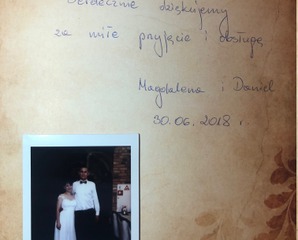 Serdecznie dziękujemy
za miłe przyjęcie i obsługę
Magdalena i Daniel
30.06.2018 r.